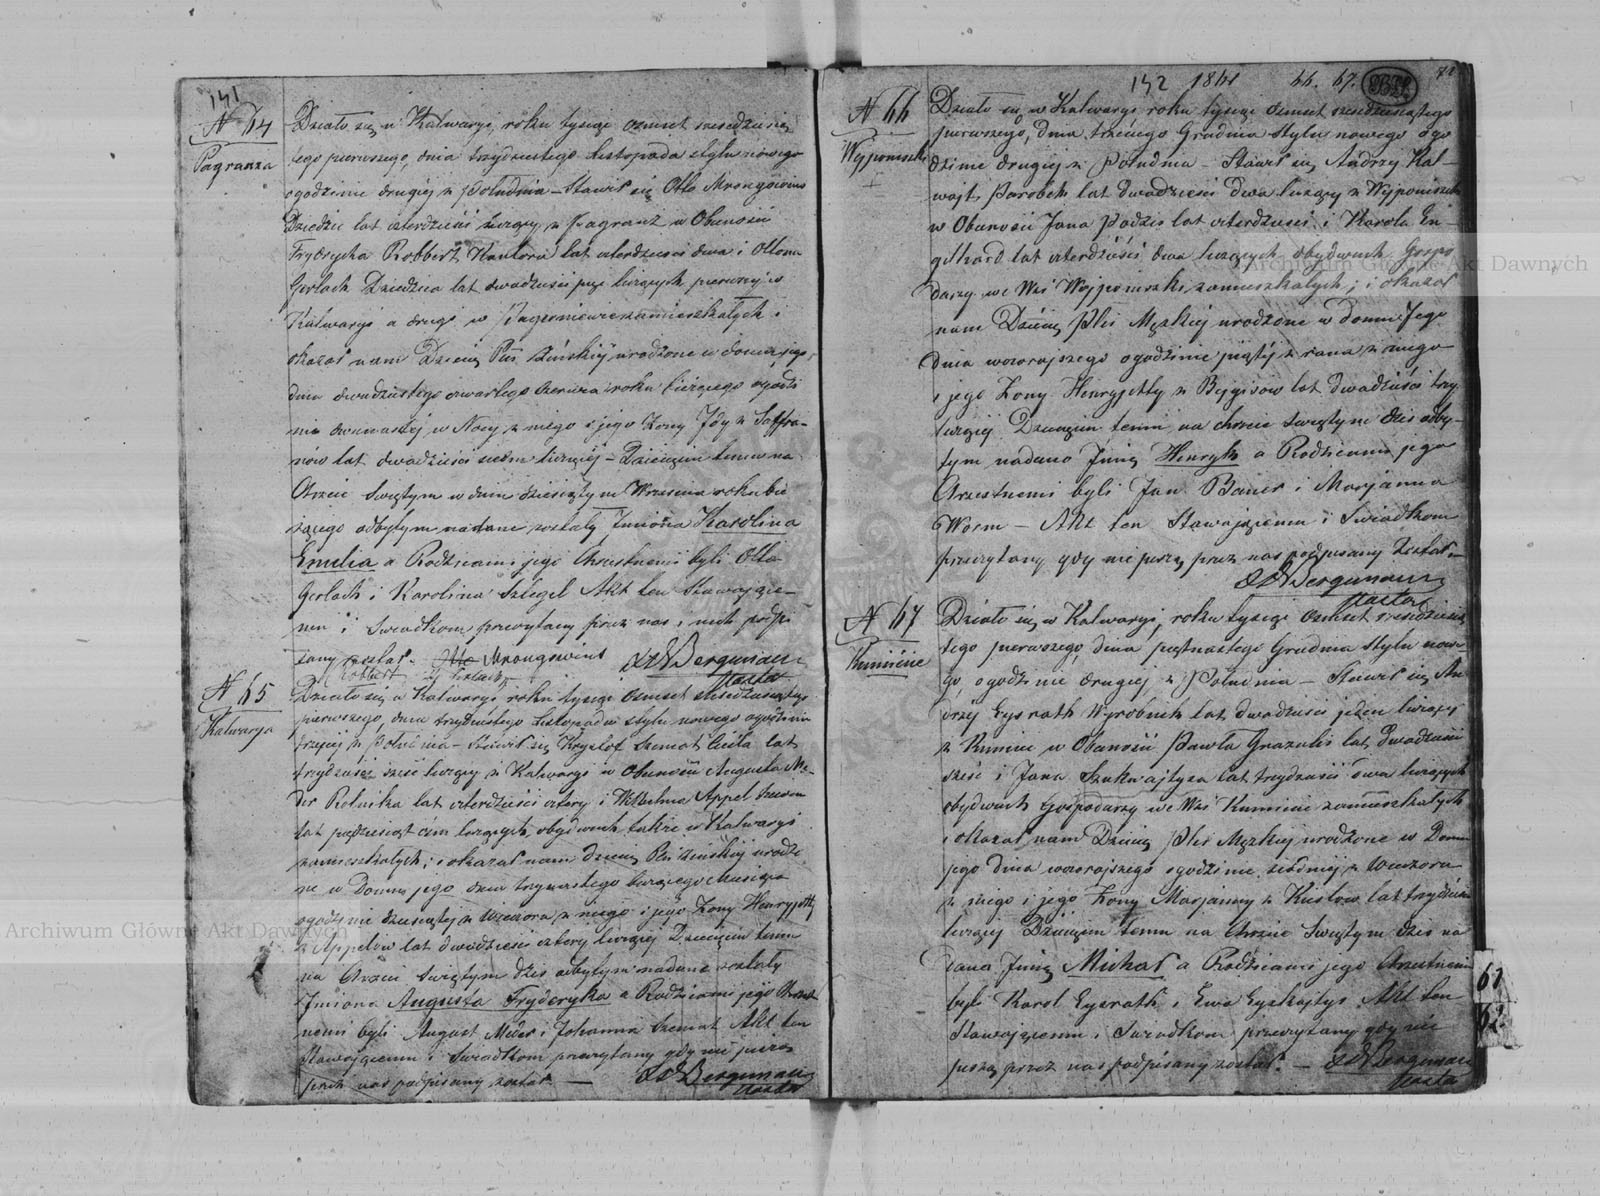 141
N 64
Pagranza
Działo się w Kalwaryi, roku tysiąc osmset sześćdziesią
tego pierwszego, dnia trzydziestego Listopada stylu nowego
o godzinie drugiéj z południa – Stawił się Otto Mrongowius
Dziedzic lat czterdzieści liczący z Pagranż w Obecności
Frydrycha Robbert Kantora lat czterdzieści dwa i Ottona
Gerlach Dziedzica lat dwadzieścia pięć liczących pierwszy w
Kalwaryi a drugi w zamieszkałych i
okazał nam Dziecię Płci żeńskiéj urodzone w domu jego,
dnia dwudziestego czwartego Czerwca roku bieżącego o godzi
nie dwunastéj w Nocy z niego i jego Żony Idy z Saffra-
nów lat dwadzieścia siedm liczącéj – Dziecięciu temu na
Chrzcie Świętym w dniu dziesiątym Września roku bie
żącego odbytym nadane zostały Imiona Karolina
Emilia a Rodzicami jego Chrzestnemi byli Otto
Gerlach i Karolina Szlegel Akt ten Stawające-
mu i Świadkom przeczytany przez nas i nich podpi
sany został. Otto Mrongowius XXBergmann
Robbert Gerlach Pastor
N 65
Kalwarya
Działo się w Kalwaryi roku tysiąc osmset sześćdziesiątego
pierwszego, dnia trzydziestego Listopada stylu nowego o godzinie
trzeciéj z południa – Stawił się Krysztof Szemat Cieśla lat
trzydzieści sześć liczący z Kalwaryi w Obecności Augusta Me-
der Rolnika lat czterdzieści cztery i Wilhelma Appel Szewca
lat pięćdziesiąt ośm liczących, obydwuch także w Kalwaryi
zamieszkałych; i okazał nam dziecię Płci żeńskiéj urodzo
ne w Domu jego dnia trzynastego bieżącego Miesiąca
o godzinie dziesiątéj z wieczora z niego i jego Żony Henryjetty
z Appelów lat dwadzieścia cztery liczącéj Dziecięciu temu
na Chrzcie Świętym dziś odbytym nadane zostały
Imiona Augusta Fryderyka a Rodzicami jego Chrzest
nemi byli August Meder i Johanna Szemat Akt ten
Stawającemu i Świadkom przeczytany gdy nie piszą
przez nas podpisany został – XXBergmann
Pastor
142 1861 66. 67.
N 66
Wyponiszki
Działo się w Kalwaryi roku tysiąc osmset sześćdziesiątego
pierwszego, dnia trzeciego Grudnia stylu nowego o go
dzinie drugiéj z Południa – Stawił się Andrzy Kal-
wajt Parobek lat dwadzieścia dwa liczący z Wyponiszek
w Obecności Jana Podzis lat czterdzieści i Karola En-
gelhard lat czterdzieści dwa liczących obydwuch Gospo
darzy we Wsi Wyponiszki zamieszkałych, i okazał
nam Dziecię Płci Męzkiéj urodzone w domu Jego
dnia wczorajszego o godzinie piątéj z rana z niego
i jego Żony Henryjetty z lat dwadzieścia trzy
liczącéj Dziecięciu temu na chrzcie Świętym dziś odby-
tym nadano Imię Henryk a Rodzicami jego
Chrzestnemi byli Jan Bauer i Maryanna
Worm – Akt ten Stawającemu i Świadkom
przeczytany gdy nie piszą przez nas podpisany Został –
XXBergmann
Pastor
N 67
Kumiecie
Działo się w Kalwaryi, roku tysiąc osmset sześćdziesią
tego pierwszego, dnia piętnastego Grudnia Stylu nowe
go, o godzinie drugiéj z Południa – Stawił się An
drzy Eysrath Wyrobnik lat dwadzieścia jeden liczący
z w Obecności Pawła Grazulis lat dwadzieścia
sześć i Jana lat trzydzieści dwa liczących
obydwuch Gospodarzy we Wsi zamieszkałych
i okazał nam Dziecię Płci Męzkiéj urodzone w Domu
jego dnia wczorajszego o godzinie siódméj z Wieczora
z niego i jego Żony Maryanny z Kustow lat trzydzieści
liczącéj Dziecięciu temu na Chrzcie Świętym dziś na
dano Imię Michał a Rodzicami jego Chrzestnemi
byli Karol Eysrath i Ewa Akt ten
Stawającemu i Świadkom przeczytany gdy nie
piszą przez nas podpisany został. – XXBergmann
Pastor
61
62
Archiwum Główne Akt Dawnych
Archiwum Główne Akt Dawnych